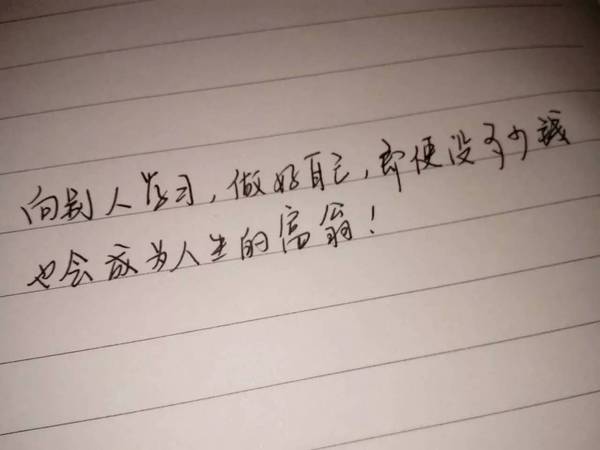 向别人学习，做好自己，即使没多少钱
也会成为人生的富翁！